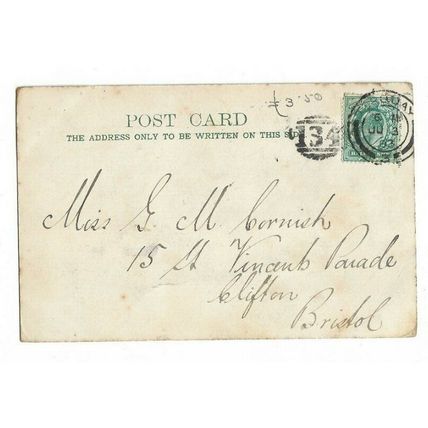 £3.50
POST CARD
THE ADDRESS ONLY TO BE WRITTEN ON THIS SIDE
134
Miss G. M. Cornish
15 St Vincents Parade
Clifton
Bristol